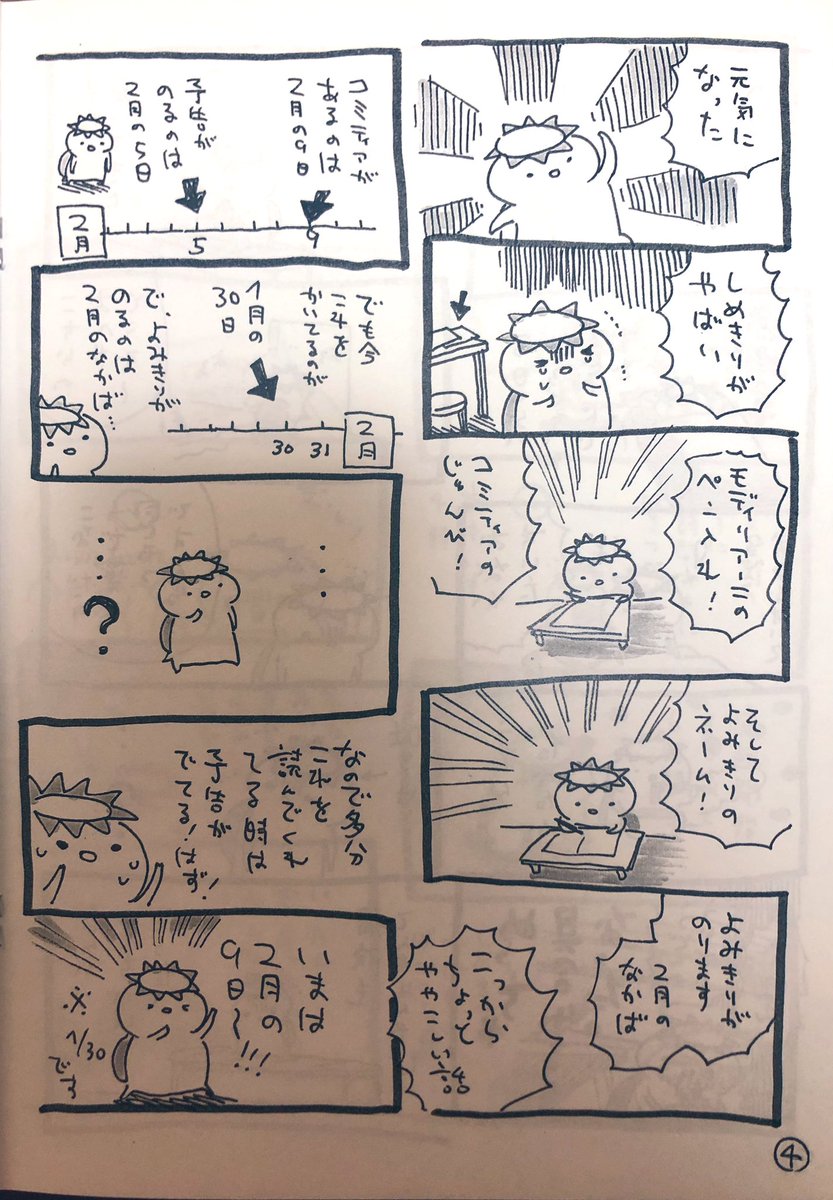 元気に
なった
しめきりが
やばい
モディリアーニの
ペン入れ!
コミティアの
じゅんび!
そして
よみきりの
ネーム!
よみきりが
のります
2月の
なかば
こっから
ちょっと
ややこしい話
コミティアが
あるのは
2月の9日
予告が
のるのは
2月の5日
2月
5
9
でも今
これを
かいてるのが
1月の
30日
で、よみきりが
のるのは
2月のなかば…
30
31
2月
…
…?
なので多分
これを
読んでくれ
てる時は
予告が
でてる!はず!
いまは
2月の
9日〜!!!
※1/30
です
④